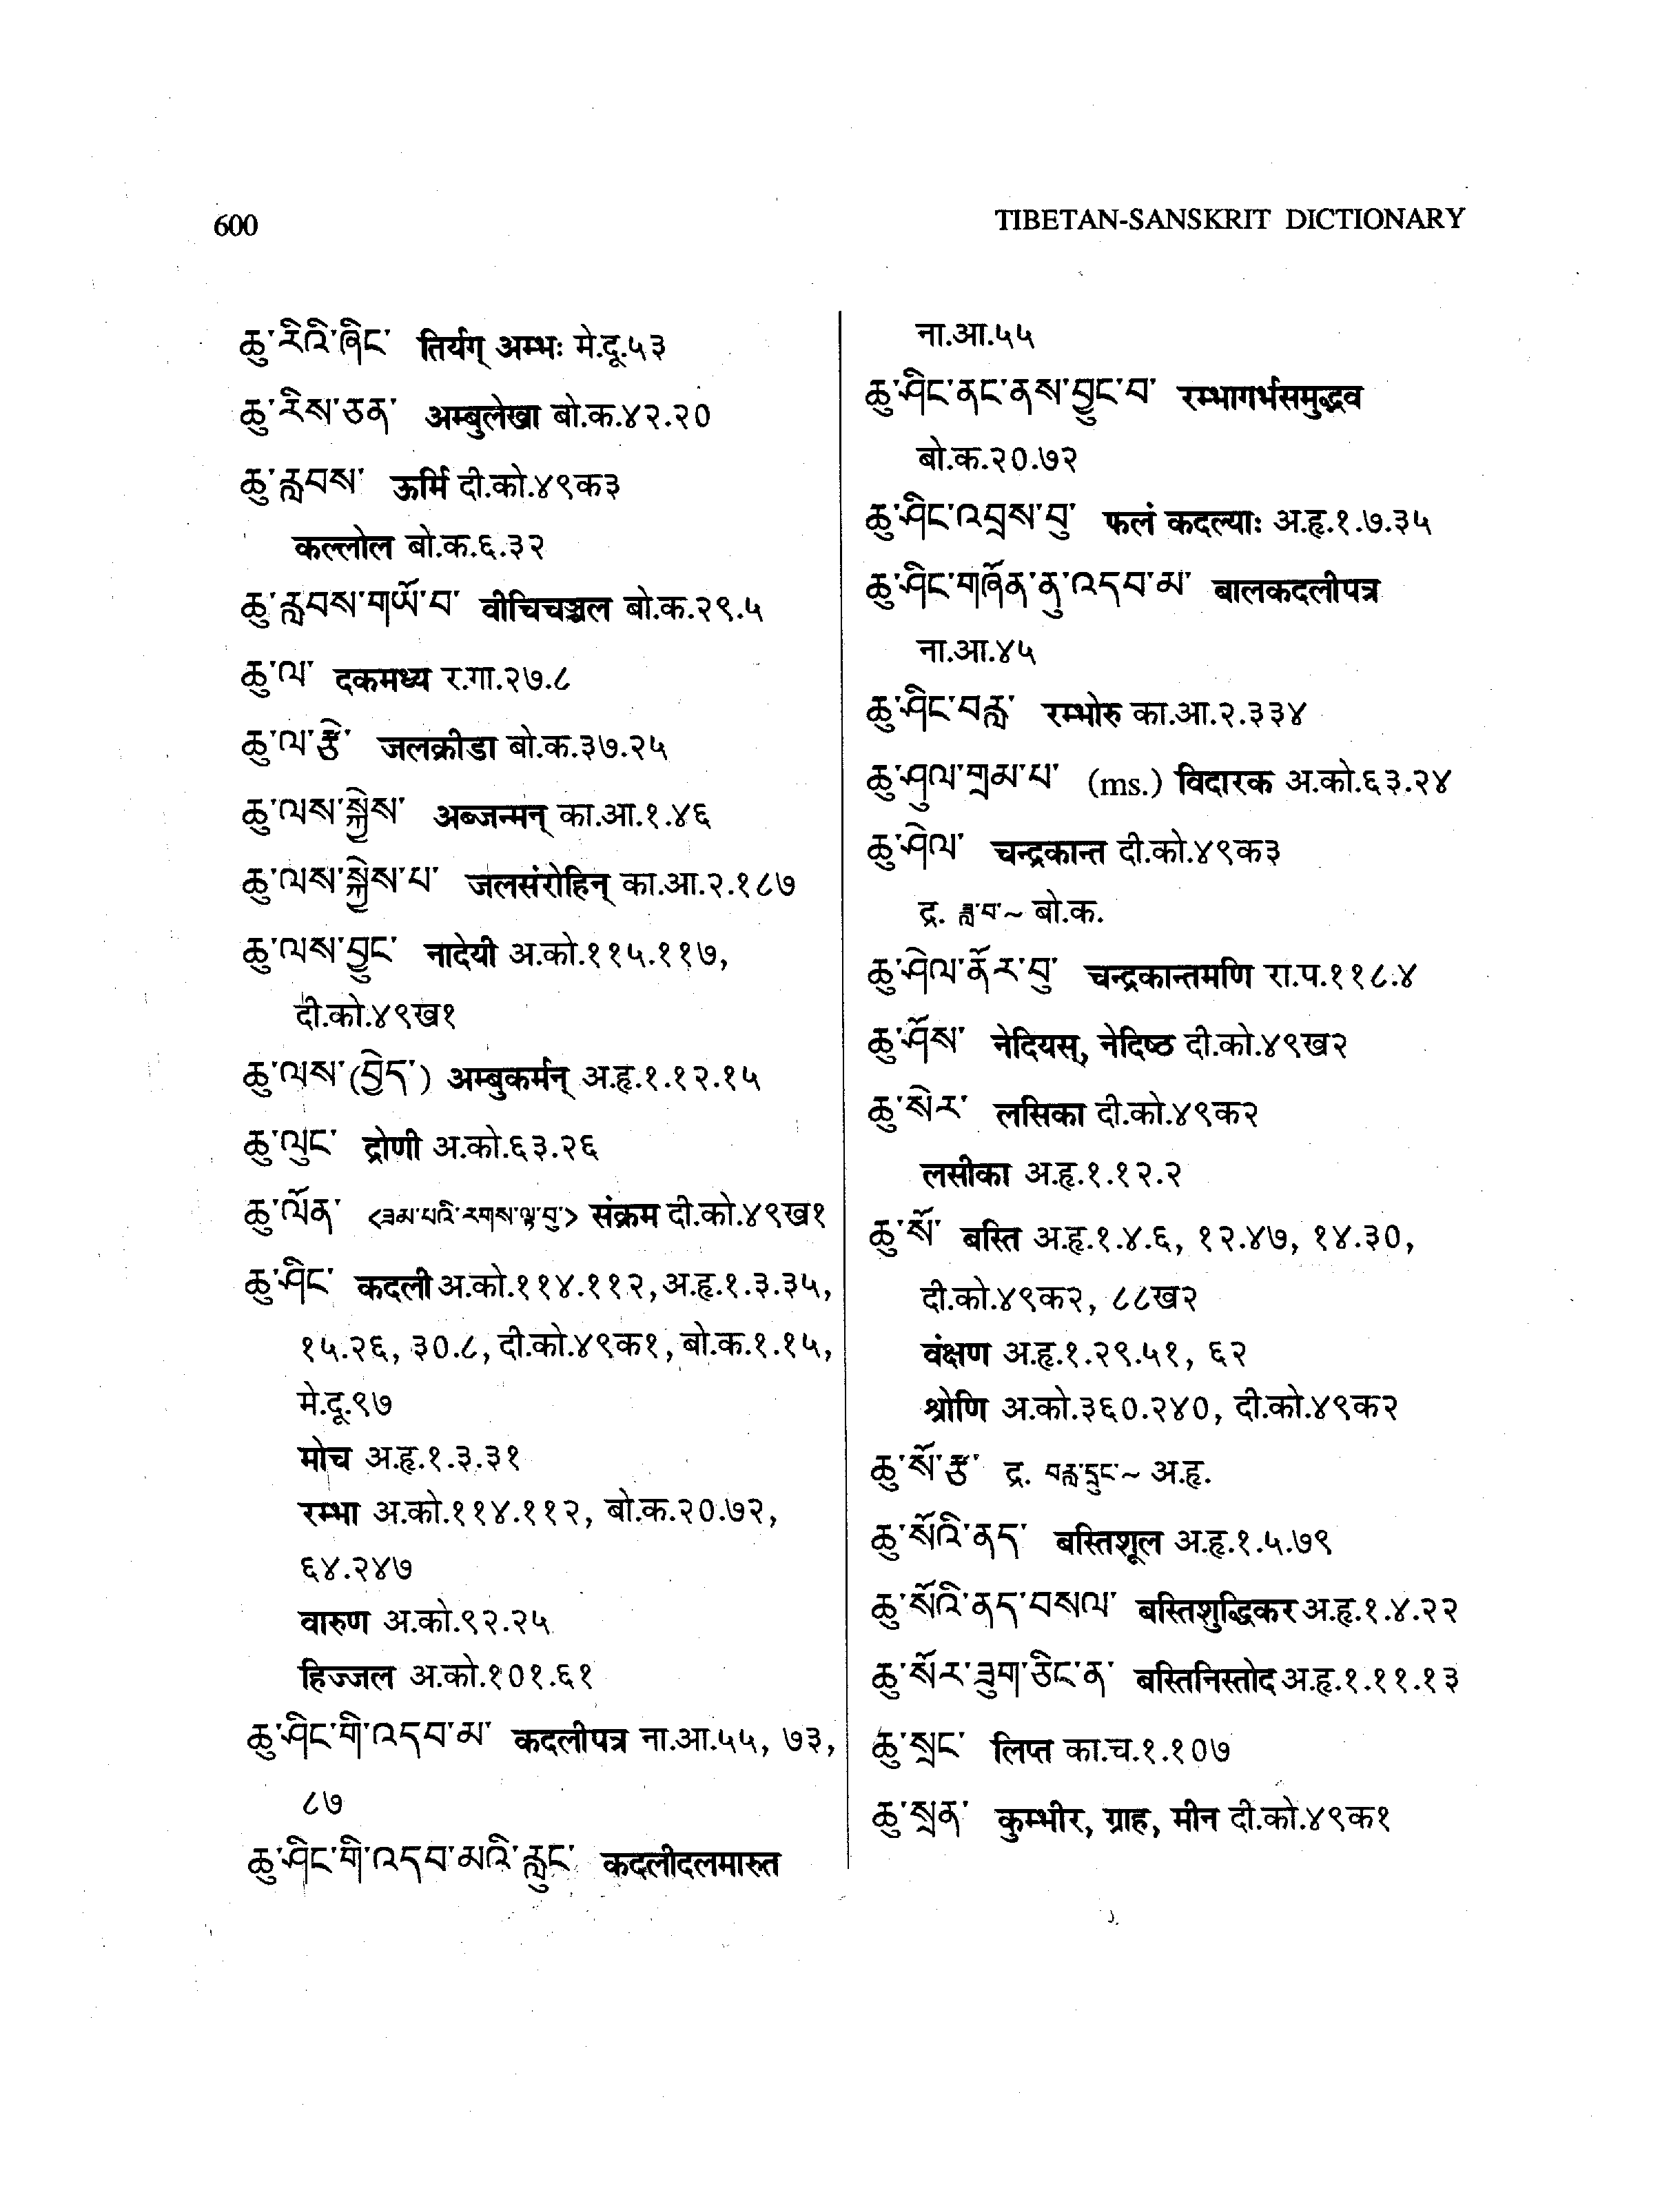 600
TIBETAN-SANSKRIT DICTIONARY
ཆུ་རིའི་ཞིང་ तिर्यग् अम्भः मे.दू.५३
ཆུ་རིས་ཅན་ अम्बुलेखा बो.क.४२.२०
ཆུ་རླབས་ ऊर्मि दी.को.४९क३
कल्लोल बो.क.६.३२
ཆུ་རླབས་གཡོ་བ་ वीचिचञ्चल बो.क.२९.५
ཆུ་ལ་ दकमध्य र.गा.२७.८
ཆུ་ལ་རྩེ་ जलक्रीडा बो.क.३७.२५
ཆུ་ལས་སྐྱེས་ अब्जन्मन् का.आ.१.४६
ཆུ་ལས་སྐྱེས་པ་ जलसंरोहिन् का.आ.२.१८७
ཆུ་ལས་བྱུང་ नादेयी अ.को.११५.११७,
दी.को.४९ख१
ཆུ་ལས་(བྱེད་) अम्बुकर्मन् अ.हृ.१.१२.१५
ཆུ་ལུང་ द्रोणी अ.को.६३.२६
ཆུ་ལོན་ <ཟམ་པའི་རགས་ལྟ་བུ་> संक्रम दी.को.४९ख१
ཆུ་ཤིང་ कदली अ.को.११४.११२, अ.हृ.१.३.३५,
१५.२६, ३०.८, दी.को.४९क१, बो.क.१.१५,
मे.दू.९७
मोच अ.हृ.१.३.३१
रम्भा अ.को.११४.११२, बो.क.२०.७२,
६४.२४७
वारुण अ.को.९२.२५
हिज्जल अ.को.१०१.६१
ཆུ་ཤིང་གི་འདབ་མ་ कदलीपत्र ना.आ.५५, ७३,
८७
ཆུ་ཤིང་གི་འདབ་མའི་རླུང་ कदलीदलमारुत
ना.आ.५५
ཆུ་ཤིང་ནང་ནས་བྱུང་བ་ रम्भागर्भसमुद्भव
बो.क.२०.७२
ཆུ་ཤིང་འབྲས་བུ་ फलं कदल्याः अ.हृ.१.७.३५
ཆུ་ཤིང་གཞོན་ནུ་འདབ་མ་ बालकदलीपत्र
ना.आ.४५
ཆུ་ཤིང་བརླ་ रम्भोरु का.आ.२.३३४
ཆུ་ཤུལ་གྲམ་པ་ (ms.) विदारक अ.को.६३.२४
ཆུ་ཤེལ་ चन्द्रकान्त दी.को.४९क३
द्र. ཟླ་བ་~ बो.क.
ཆུ་ཤེལ་ནོར་བུ་ चन्द्रकान्तमणि रा.प.११८.४
ཆུ་ཤོས་ नेदियस्, नेदिष्ठ दी.को.४९ख२
ཆུ་སེར་ लसिका दी.को.४९क२
लसीका अ.हृ.१.१२.२
ཆུ་སོ་ बस्ति अ.हृ.१.४.६, १२.४७, १४.३०,
दी.को.४९क२, ८८ख२
वंक्षण अ.हृ.१.२९.५१, ६२
श्रोणि अ.को.३६०.२४०, दी.को.४९क२
ཆུ་སོ་རྩ་ द्र. བརླ་དྲུང་~ अ.हृ.
ཆུ་སོའི་ནད་ बस्तिशूल अ.हृ.१.५.७९
ཆུ་སོའི་ནད་བསལ་ बस्तिशुद्धिकर अ.हृ.१.४.२२
ཆུ་སོར་ཟུག་ཅིང་ན་ बस्तिनिस्तोद अ.हृ.१.११.१३
ཆུ་སྲང་ लिप्त का.च.१.१०७
ཆུ་སྲིན་ कुम्भीर, ग्राह, मीन दी.को.४९क१